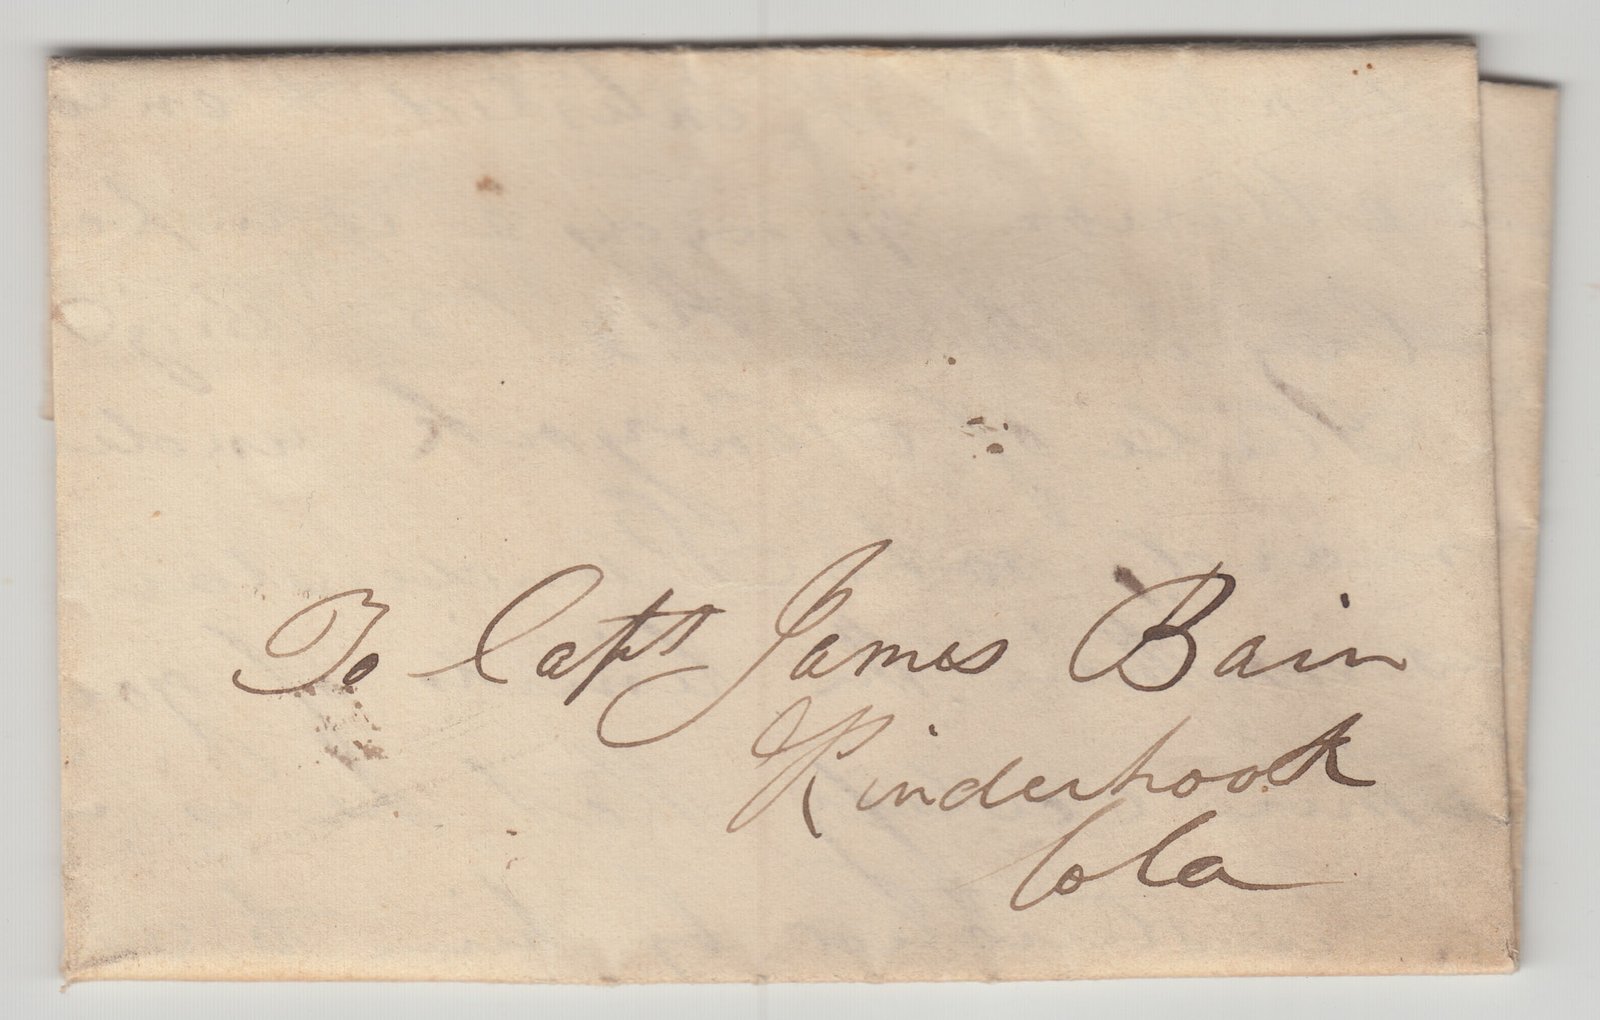 To Capt James Bain
Kinderhook
Cola